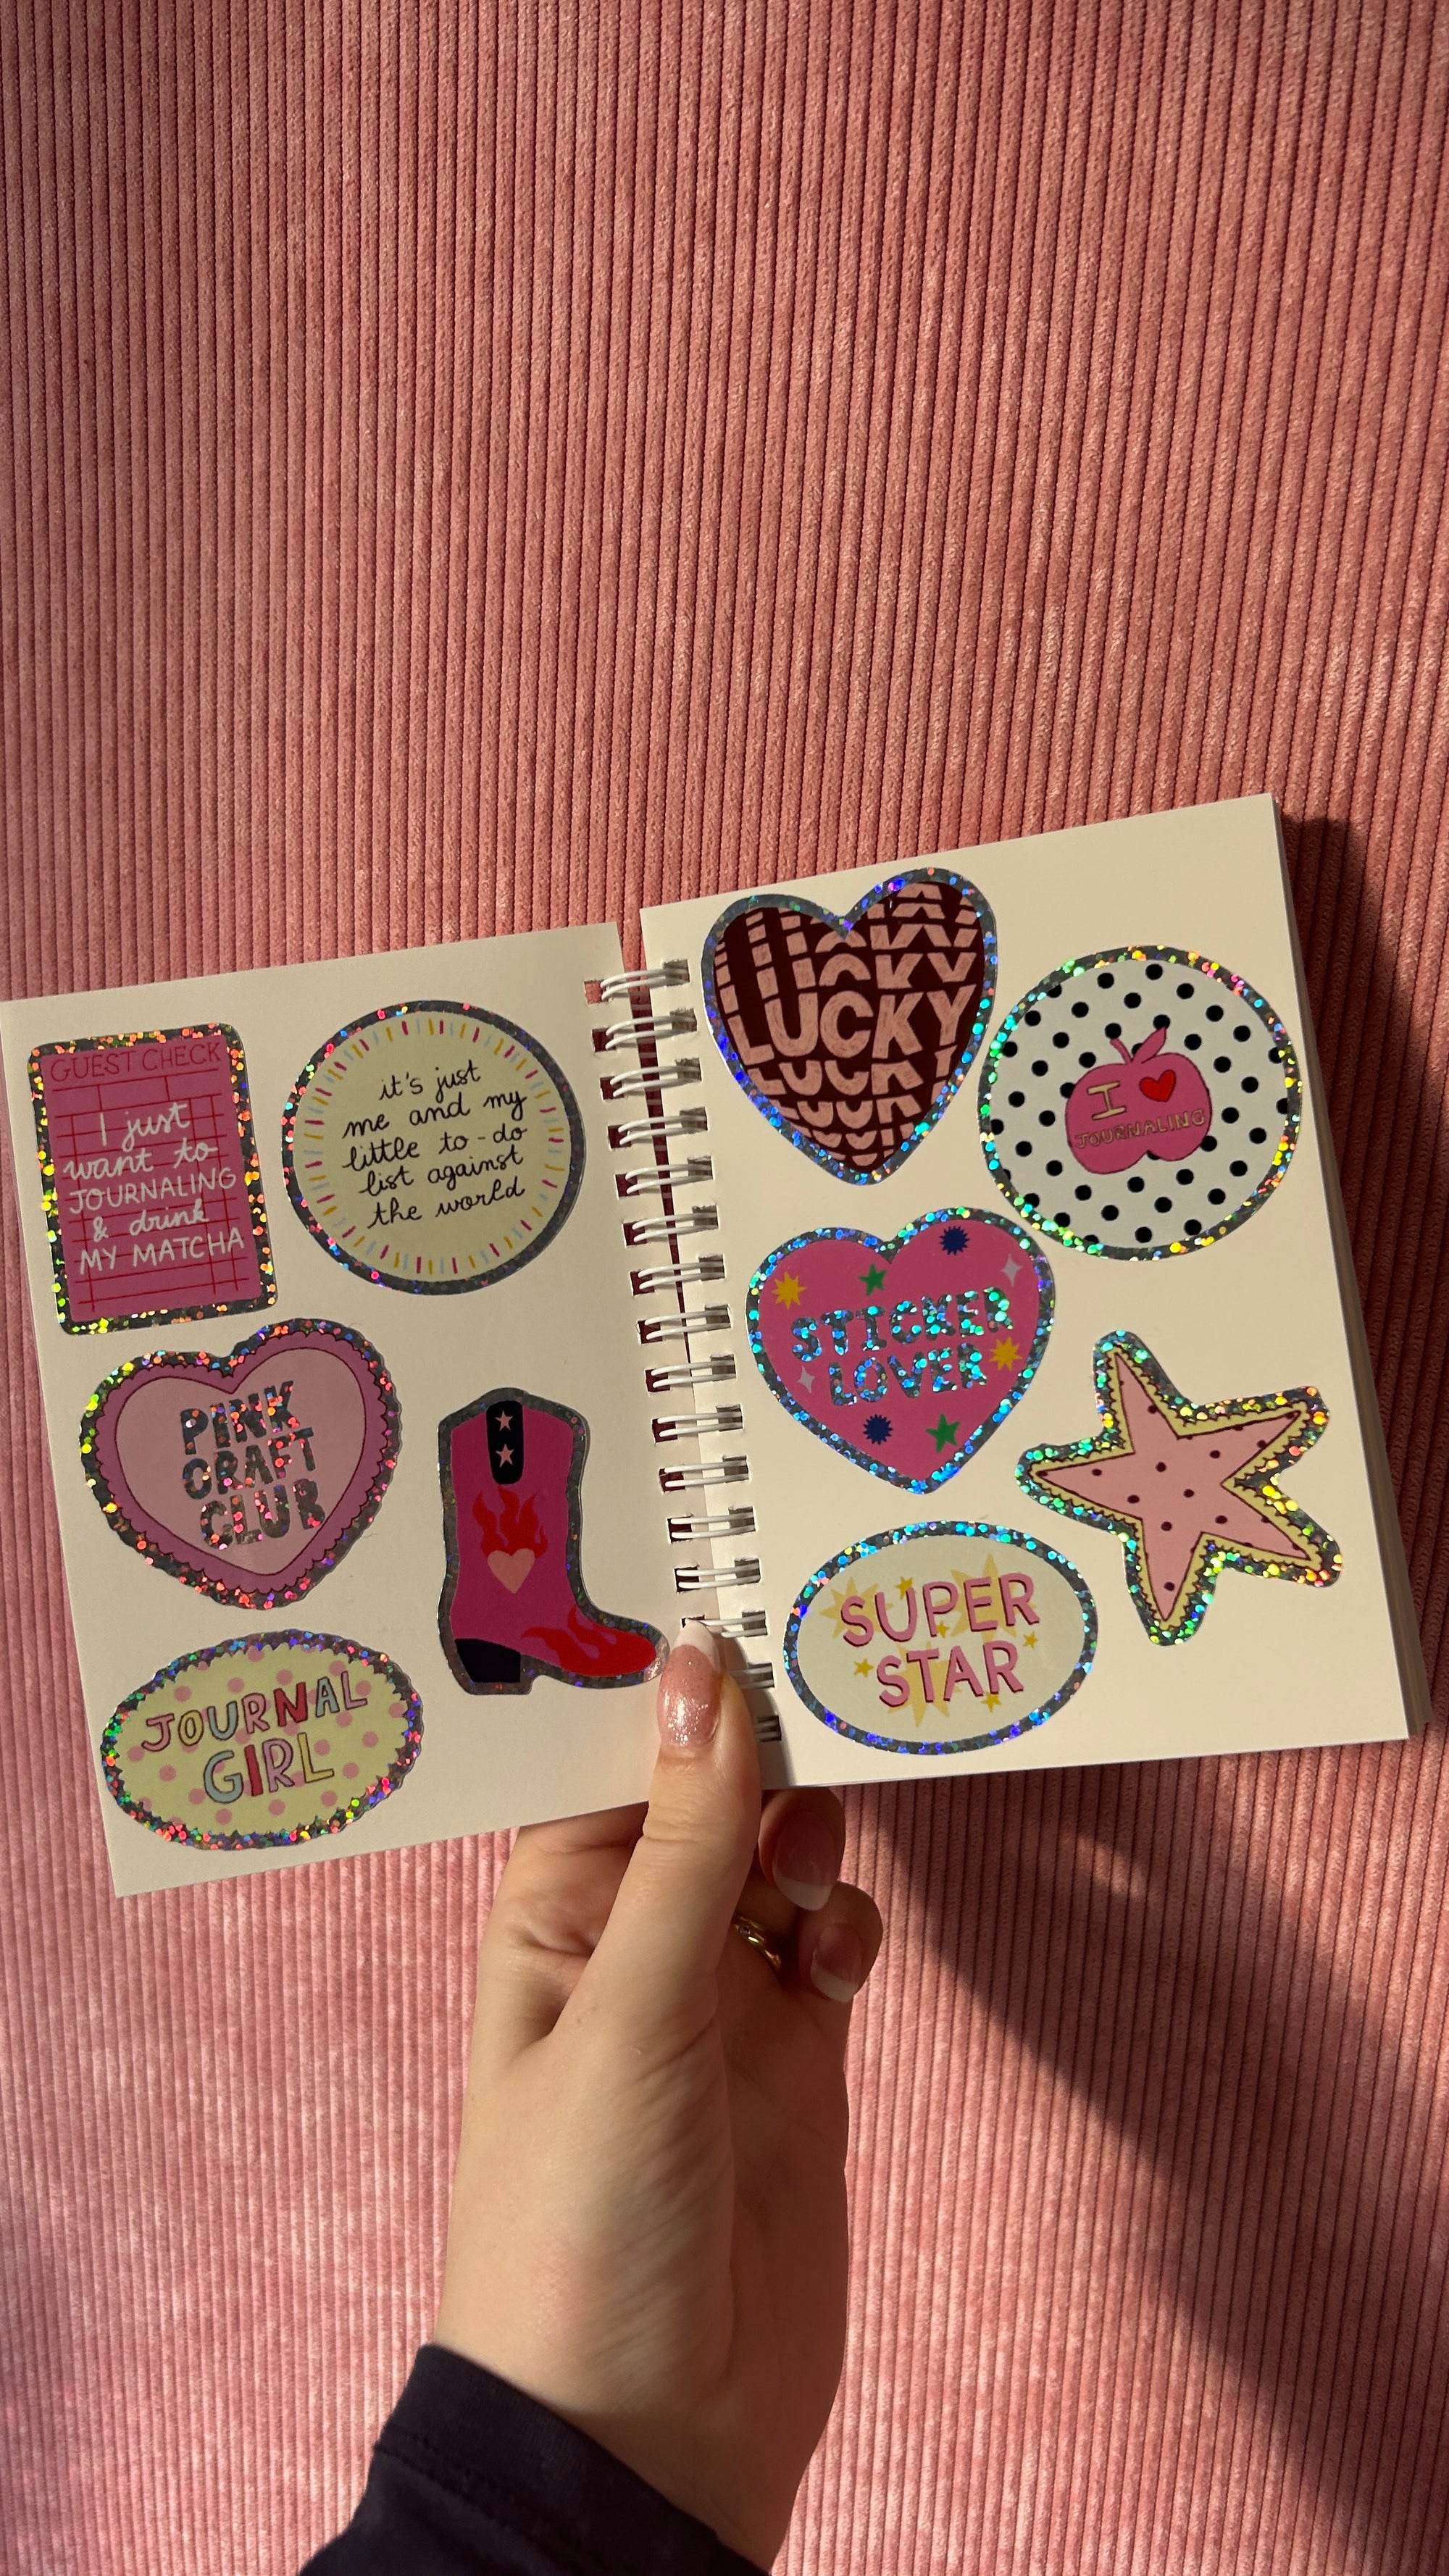 GUEST CHECK
I just
want to
JOURNALING
& drink
MY MATCHA
it's just
me and my
little to-do
list against
the world
PINK
CRAFT
CLUB
JOURNAL
GIRL
LUCKY
LUCKY
LUCKY
LUCKY
I ♥
JOURNALING
STICKER
LOVER
SUPER
STAR